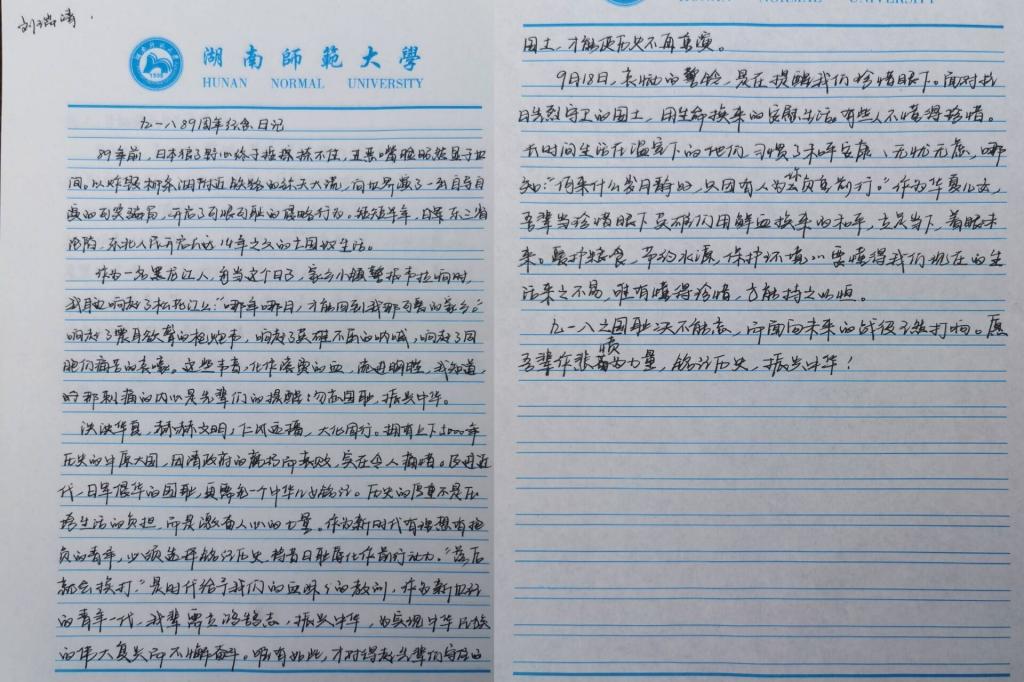 刘瑞清
湖南師範大學
HUNAN NORMAL UNIVERSITY
1938
九一八89周年纪念日记
89年前，日本狼子野心终于按捺不住，丑恶嘴脸昭然显于世
间。以炸毁柳条湖附近铁路的弥天大谎，向世界演了一出自导自
演的可笑骗局，开启了可恨可耻的侵略行为。短短半年，日军东三省
沦陷，东北人民开启长达14年之久的亡国奴生活。
作为一名黑龙江人，每当这个日子，家乡小镇警报声拉响时，
我耳边响起了松花江上：“哪年哪月，才能回到我那可爱的家乡。”
响起了震耳欲聋的枪炮声，响起了英雄不屈的呐喊，响起了同
胞们痛苦的哀嚎。这些声音，化作滚烫的血，流进胸膛，我知道，
的那刺痛的内心是先辈们的提醒：勿忘国耻，振兴中华。
泱泱华夏，赫赫文明，仁风远播，大化周行。拥有上下5000年
历史的中原大国，因清政府的腐朽而衰败，实在令人痛惜。及进近
代，日军侵华的国耻，更需每一个中华儿女铭记。历史的厚重不是压
垮生活的负担，而是激奋人心的力量。作为新时代有理想有担
负的青年，必须选择铭记历史，将昔日耻辱化作前行动力。“落后
就会挨打。”是时代给予我们的血淋淋的教训，作为新世纪
的青年一代，我辈需立鸿鹄志，振兴中华，为实现中华民族
的伟大复兴而不懈奋斗。唯有如此，才对得起先辈们守护的
NORMAL UNIVERSITY
国土，才能使历史不再重演。
9月18日，来临的警铃，是在提醒我们珍惜眼下。面对抗
日先烈守卫的国土，用生命换来的安慰生活。有些人不懂得珍惜。
长时间生活在温室下的他们，习惯了和平安康、无忧无虑，哪
知：“何来什么岁月静好，只因有人为你负重前行。”作为华夏儿女，
吾辈当珍惜眼下英雄们用鲜血换来的和平，立足当下，着眼未
来。爱护粮食，节约水源，保护环境……要懂得我们现在的生
活来之不易，唯有懂得珍惜，方能持之以恒。
九一八之国耻决不能忘，而面向未来的战役已经打响。愿
吾辈作悲愤为力量，铭记历史，振兴中华！